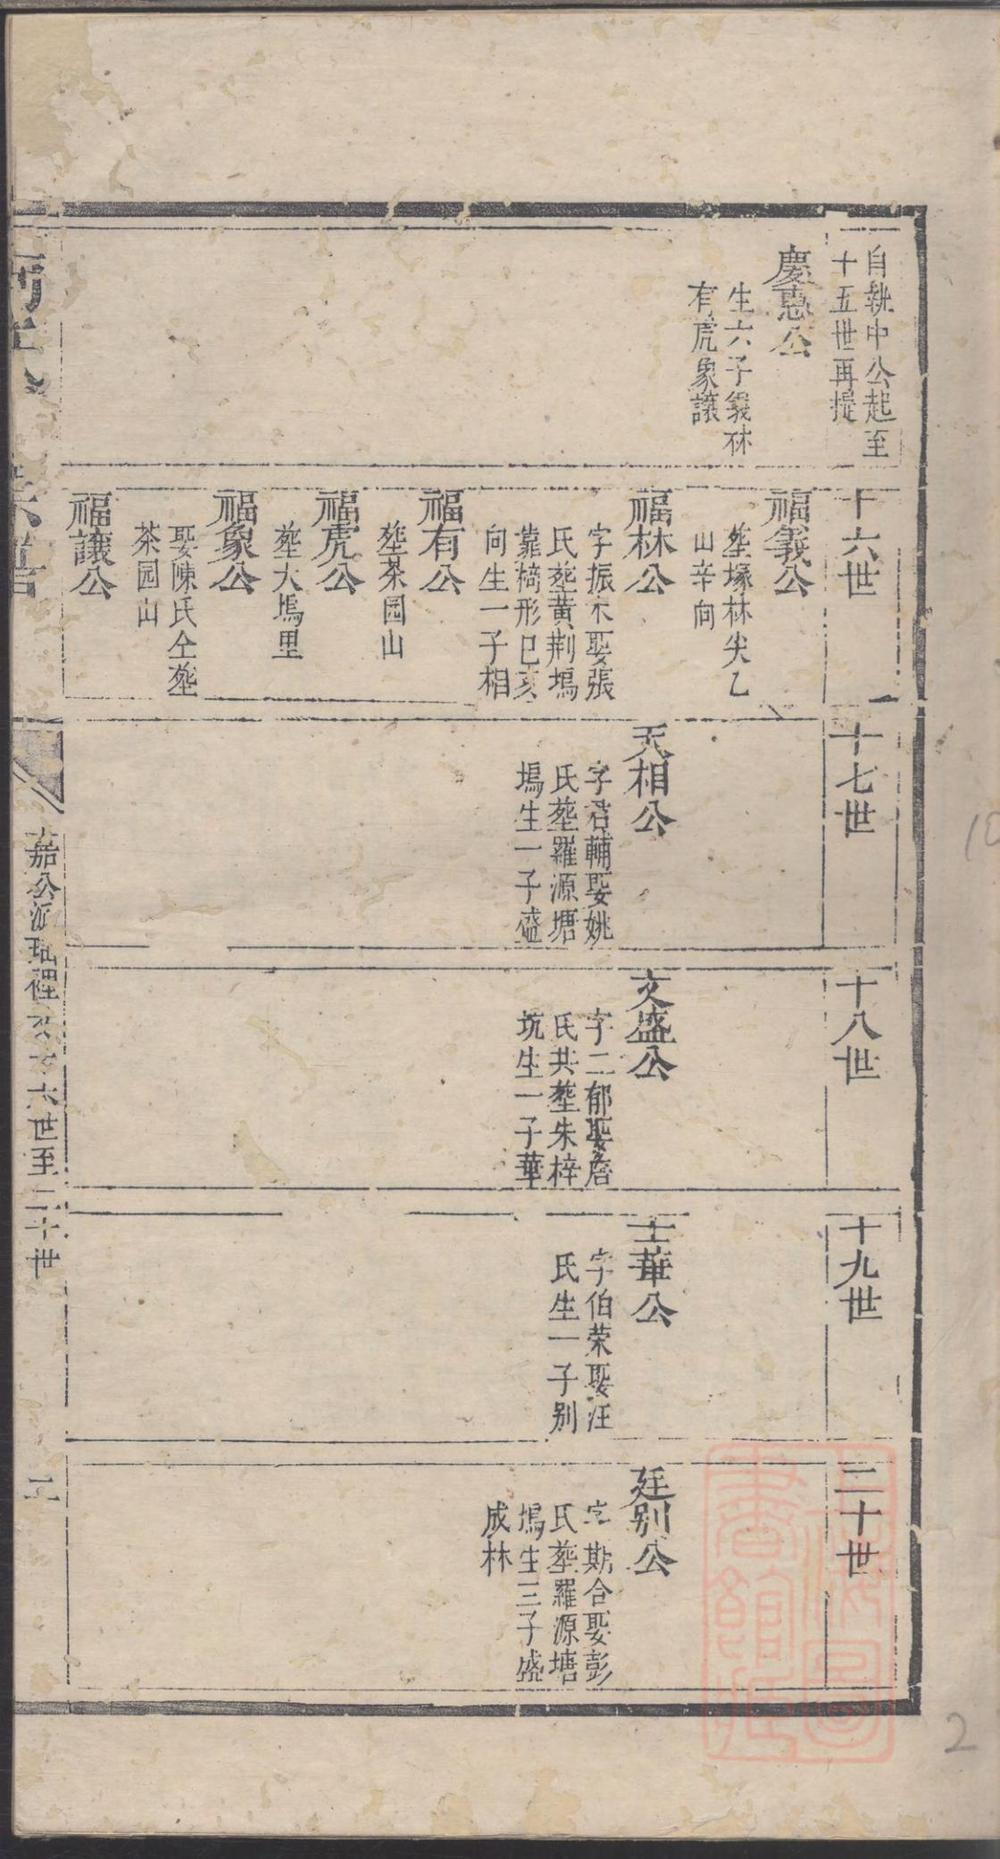 自執中公起至
十五世再提
慶惠公
生六子義林
有虎象讓
十六世
福義公
塟塚林尖乙
山辛向
福林公
字振宋娶張
氏塟黄荆塢
靠椅形巳亥
向生一子相
福有公
塟茶园山
福虎公
塟大塢里
福象公
娶陳氏仝塟
茶园山
福讓公
十七世
天相公
字君輔娶姚
氏塟羅源塘
塢生一子盛
十八世
文盛公
字二郁娶唐
氏共塟朱梓
坑生一子華
十九世
士華公
字伯荣娶汪
氏生一子别
二十世
廷别公
字斯合娶彭
氏塟羅源塘
塢生三子盛
成林
宗譜
嘉公派 裡 十六世至二十世
10
2